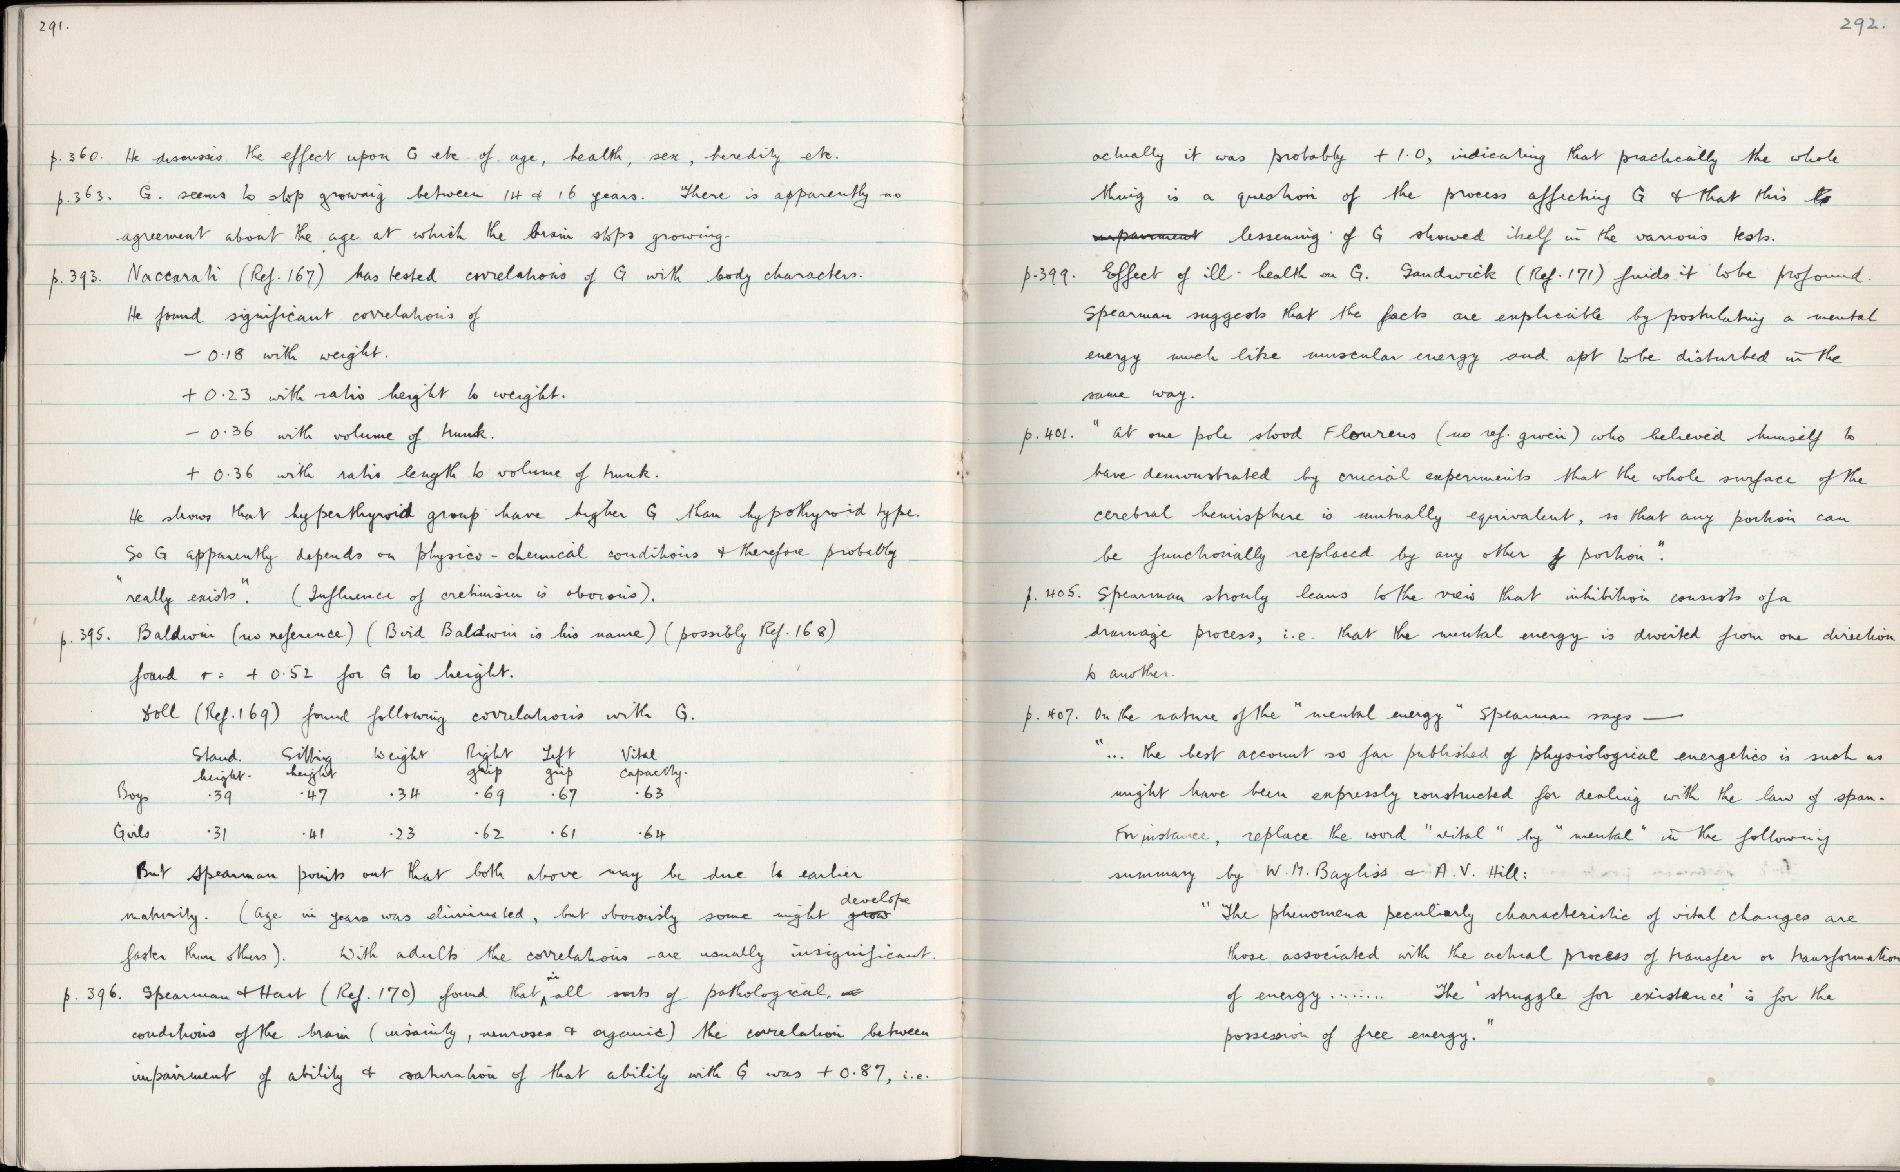 291.
p.360. He discusses the effect upon G etc of age, health, sex, heredity etc.
p.363. G. seems to stop growing between 14 & 16 years. There is apparently no
agreement about the age at which the brain stops growing.
p.393. Naccarati (Ref. 167) has tested correlations of G with body characters.
He found significant correlations of
– 0.18 with weight.
+ 0.23 with ratio height to weight.
– 0.36 with volume of trunk.
+ 0.36 with ratio length to volume of trunk.
He shows that hyperthyroid group have higher G than hypothyroid type.
So G apparently depends on physico-chemical conditions & therefore probably
"really exists". (Influence of cretinism is obvious).
p.395. Baldwin (no reference) (Bird Baldwin is his name) (possibly Ref. 168)
found r = + 0.52 for G to height.
Doll (Ref. 169) found following correlations with G.
Stand. Sitting Weight Right Left Vital
height. height grip grip capacity.
Boys .39 .47 .34 .69 .67 .63
Girls .31 .41 .23 .62 .61 .64
But Spearman points out that both above may be due to earlier
maturity. (Age in years was eliminated, but obviously some might grow develope
faster than others). With adults the correlations are usually insignificant.
p. 396. Spearman & Hart (Ref. 170) found that in all sorts of pathological
conditions of the brain (insanity, neuroses & organic) the correlation between
impairment of ability & saturation of that ability with G was + 0.87, i.e.
292.
actually it was probably + 1.0, indicating that practically the whole
thing is a question of the process affecting G & that this
impairment lessening of G showed itself in the various tests.
p.399. Effect of ill-health on G. Sandwick (Ref. 171) finds it to be profound.
Spearman suggests that the facts are explicable by postulating a mental
energy much like muscular energy and apt to be disturbed in the
same way.
p.401. "At one pole stood Flourens (no ref. given) who believed himself to
have demonstrated by crucial experiments that the whole surface of the
cerebral hemisphere is mutually equivalent, so that any portion can
be functionally replaced by any other portion".
p. 405. Spearman stronly leans to the view that inhibition consists of a
drainage process, i.e. that the mental energy is diverted from one direction
to another.
p. 407. On the nature of the "mental energy" Spearman says —
"... the best account so far published of physiological energetics is such as
might have been expressly constructed for dealing with the law of span.
For instance, replace the word "vital" by "mental" in the following
summary by W.M. Bayliss & A.V. Hill:
"The phenomena peculiarly characteristic of vital changes are
those associated with the actual process of transfer or transformation
of energy ........ The 'struggle for existence' is for the
possession of free energy."